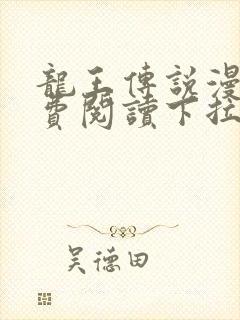 龍王傳說漫
費閱讀下拉
吳德田